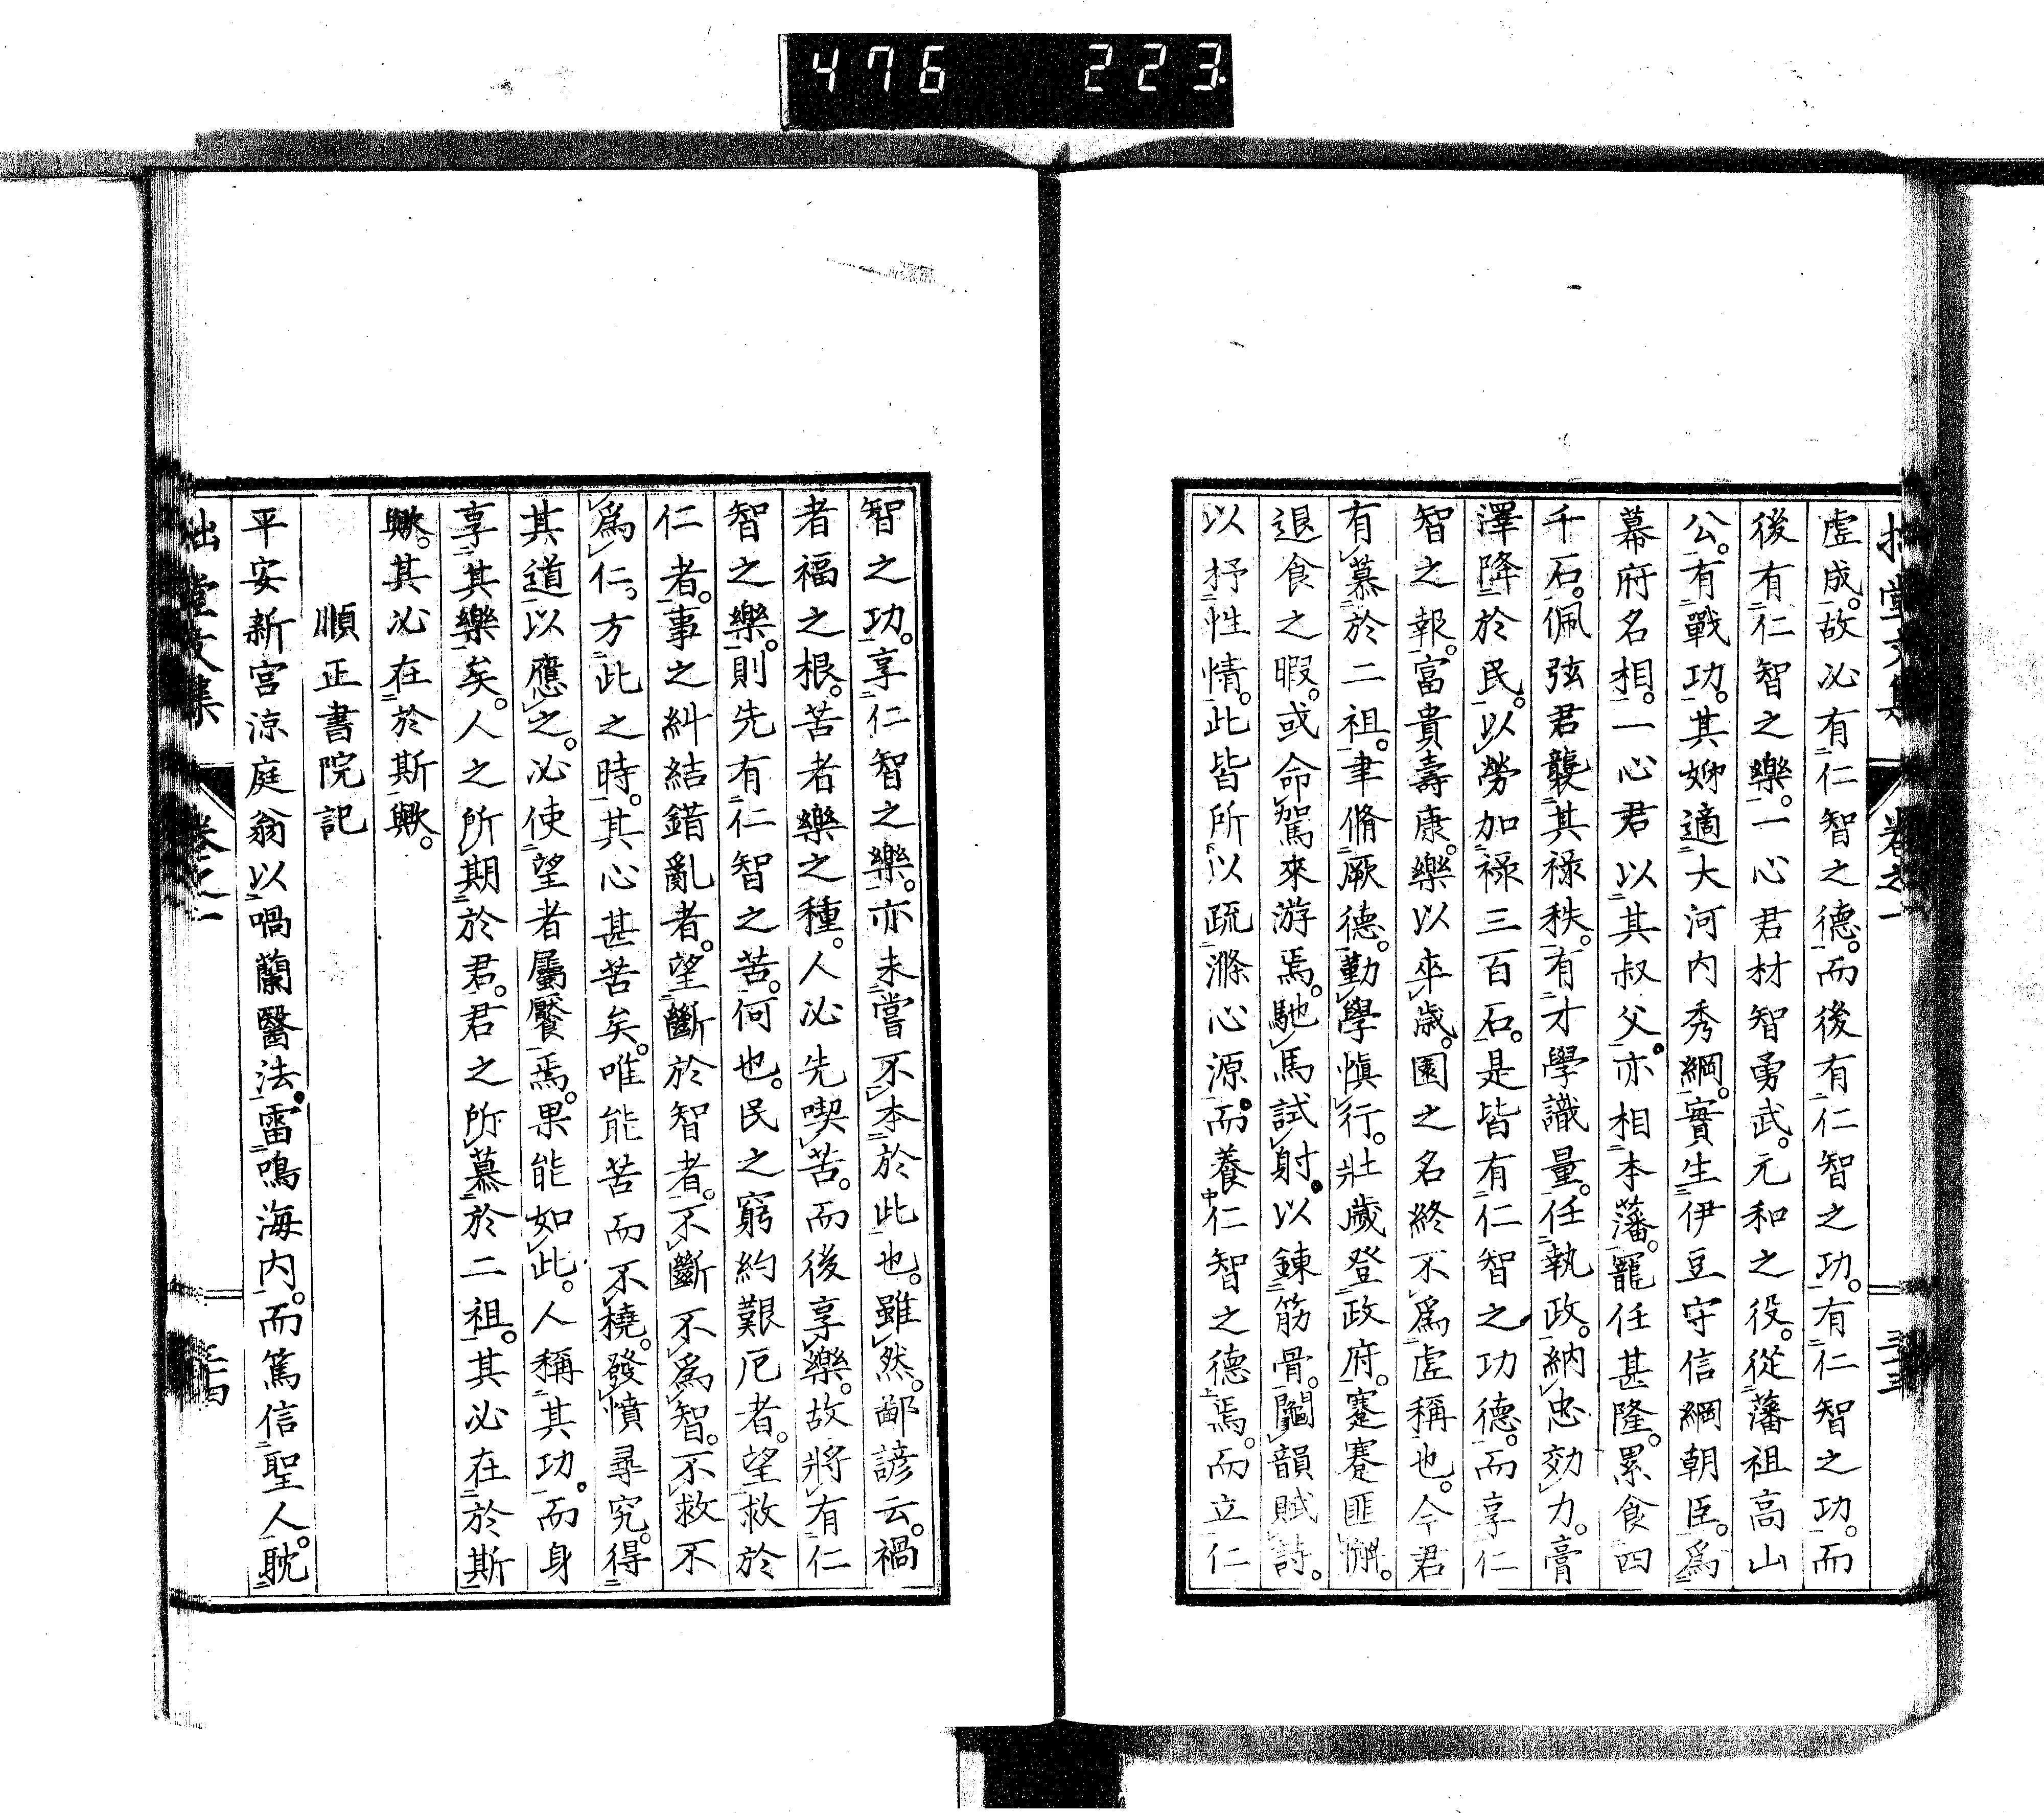 476 223
虛成。故必有仁智之德。而後有仁智之功。有仁智之功。而
後有仁智之樂。一心君材智勇武。元和之役。從藩祖高山
公。有戰功。其姊適大河內秀綱。實生伊豆守信綱朝臣。爲
幕府名相。一心君以其叔父。亦相本藩。寵任甚隆。累食四
千石。佩弦君襲其祿秩。有才學識量。任執政。納忠効力。膏
澤降於民。以勞加祿三百石。是皆有仁智之功德。而享仁
智之報。富貴壽康。樂以卒歲。園之名終不爲虛稱也。今君
有慕於二祖。聿脩厥德。勤學愼行。壯歲登政府。蹇蹇匪懈。
退食之暇。或命駕來游焉。馳馬試射。以鍊筋骨。鬮韻賦詩。
以抒性情。此皆所以疏滌心源。而養仁智之德焉。而立仁
智之功。享仁智之樂。亦未嘗不本於此也。雖然。鄙諺云。禍
者福之根。苦者樂之種。人必先喫苦。而後享樂。故將有仁
智之樂。則先有仁智之苦。何也。民之窮約艱厄者。望救於
仁者。事之糾結錯亂者。望斷於智者。不斷不爲智。不救不
爲仁。方此之時。其心甚苦矣。唯能苦而不撓。發憤尋究。得
其道以應之。必使望者屬饜焉。果能如此。人稱其功。而身
享其樂矣。人之所期於君。君之所慕於二祖。其必在於斯
歟。其必在於斯歟。
順正書院記
平安新宮涼庭翁以喎蘭醫法。雷鳴海內。而篤信聖人。耽
拙堂文集 卷之一